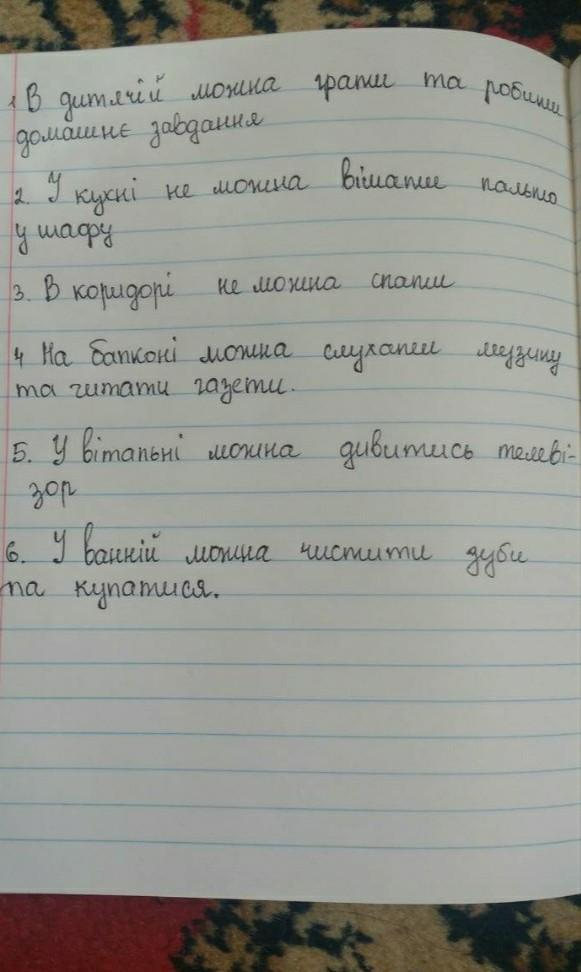 1 В дитячій можна грати та робити
домашнє завдання
2. У кухні не можна вішати пальто
у шафу
3. В коридорі не можна спати
4 На балконі можна слухати музику
та читати газети.
5. У вітальні можна дивитись телеві-
зор
6. У ванній можна чистити зуби
та купатися.